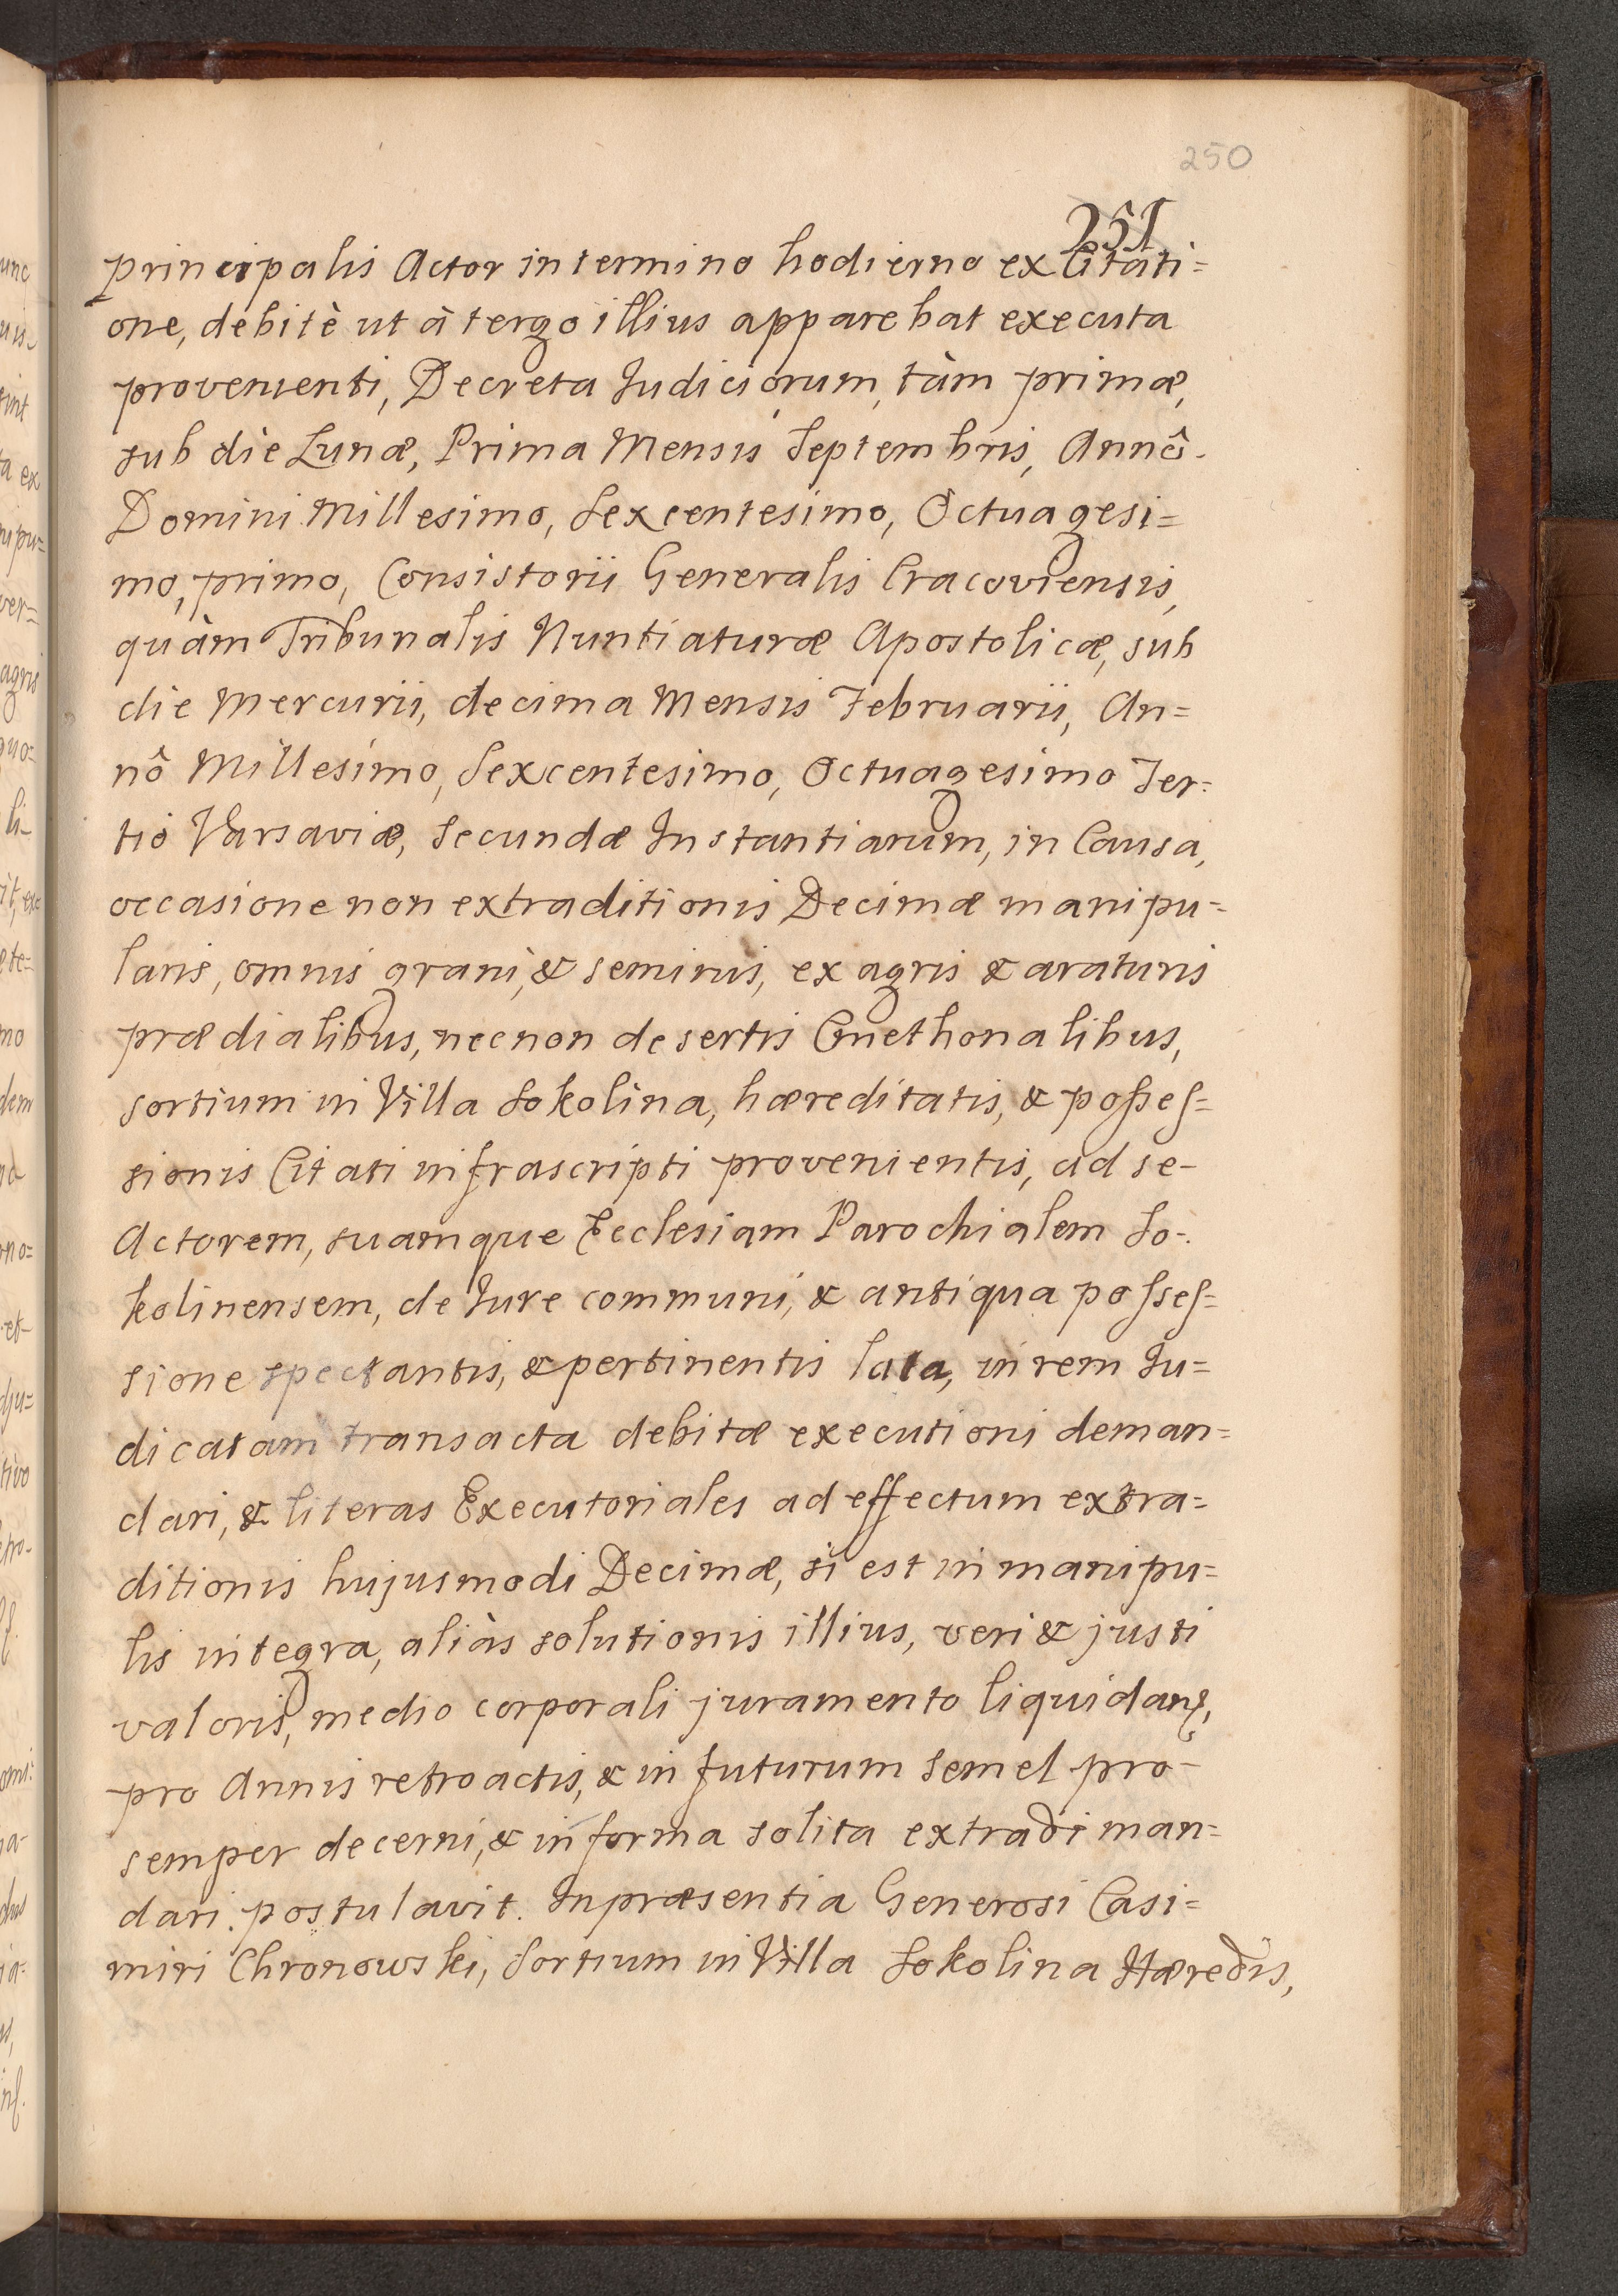 250
251
principalis Actor in termino hodierno ex Citati=
one, debitè ut à tergo illius apparebat executa
provenienti, Decreta Iudiciorum, tàm primæ,
sub die Lunæ, Prima Mensis Septembris, Annô
Domini Millesimo, Sexcentesimo, Octuagesi=
mo, primo, Consistorii Generalis Cracoviensis,
quàm Tribunalis Nuntiaturæ Apostolicæ, sub
die Mercurii, decima Mensis Februarii, An=
nô Millesimo, Sexcentesimo, Octuagesimo Ter=
tio Varsaviæ, Secundæ Instantiarum, in Causa,
occasione non extraditionis Decimæ manipu=
laris, omnis grani, & seminis, ex agris & araturis
prædialibus, necnon desertis Cmethonalibus,
sortium in Villa Sokolina, hæreditatis, & posses=
sionis Citati infrascripti provenientis, ad se-
Actorem, suamque Ecclesiam Parochialem So-
kolinensem, de Iure communi, & antiqua posses=
sione spectantis, & pertinentis lata, in rem Iu=
dicatam transacta debitæ executioni deman=
dari, & literas Executoriales ad effectum extra=
ditionis hujusmodi Decimæ, si est in manipu=
lis integra, aliàs solutionis illius, veri & justi
valoris, medio corporali juramento liquidanđ,
pro Annis retroactis, & in futurum semel pro-
semper decerni, & in forma solita extradi man=
dari postulavit. In præsentia Generosi Casi=
miri Chronowski, Sortium in Villa Sokolina Hæredis,